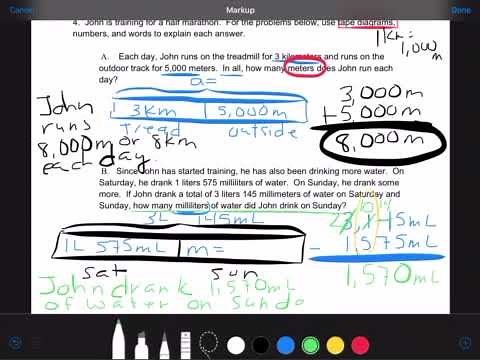 Cancel Markup Done
4. John is training for a half marathon. For the problems below, use tape diagrams,
numbers, and words to explain each answer.
1km=
1,000
m
A. Each day, John runs on the treadmill for 3 kilometers and runs on the
outdoor track for 5,000 meters. In all, how many meters does John run each
day?
a=
3km 5,000m
tread outside
John
runs
8,000m or 8km
each day.
3,000m
+5,000m
8,000m
B. Since John has started training, he has also been drinking more water. On
Saturday, he drank 1 liters 575 milliliters of water. On Sunday, he drank some
more. If John drank a total of 3 liters 145 millimeters of water on Saturday and
Sunday, how many milliliters of water did John drink on Sunday?
3L 145mL
1L 575mL m=
sat sun
2 10 14
3,145mL
- 1,575mL
1,570mL
John drank 1,570mL
of water on Sunda